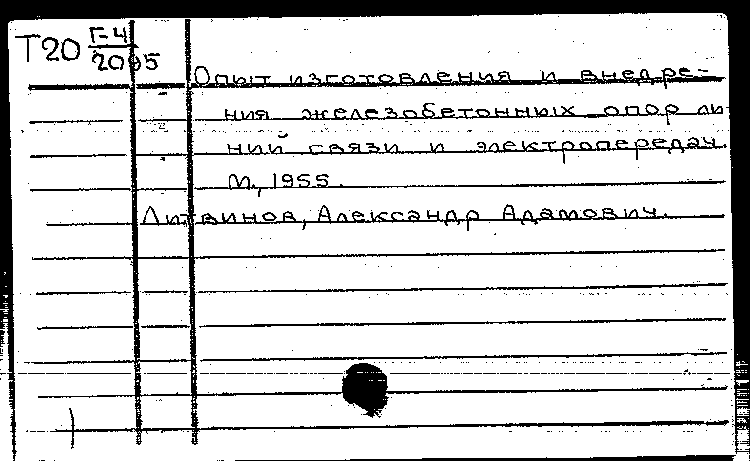 Т20 Г-4
2095
Опыт изготовления и внедре-
ния железобетонных опор ли
ний связи и электропередач.
М., 1955.
Литвинов, Александр Адамович.